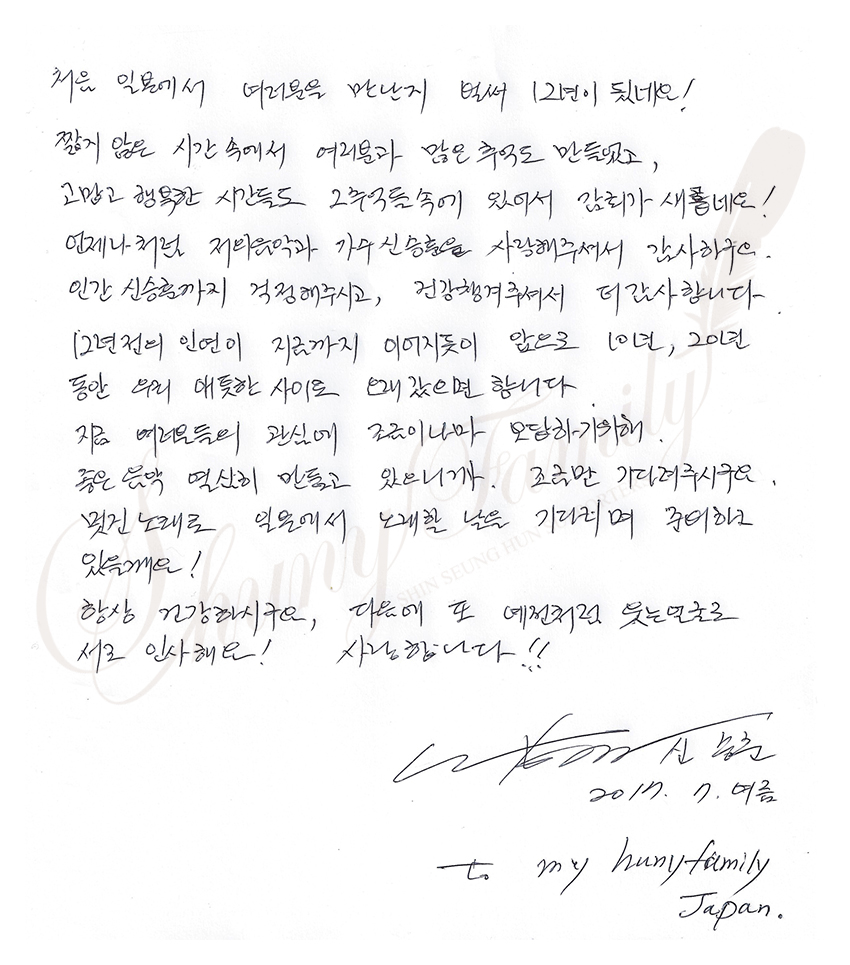 처음 일본에서 여러분을 만난지 벌써 12년이 됬네요!
짧지 않은 시간 속에서 여러분과 많은 추억도 만들었고,
고맙고 행복한 시간들도 그추억들속에 있어서 감회가 새롭네요!
언제나처럼 저의음악과 가수신승훈을 사랑해주셔서 감사하구요.
인간 신승훈까지 걱정해주시고, 건강챙겨주셔서 더감사합니다.
12년전의 인연이 지금까지 이어지듯이 앞으로 10년, 20년
동안 우리 애틋한 사이로 오래갔으면 합니다
지금 여러분들의 관심에 조금이나마 보답하기위해.
좋은음악 열심히 만들고 있으니까. 조금만 기다려주시구요.
멋진노래로 일본에서 노래할 날을 기다리며 준비하고
있을게요!
항상 건강하시구요, 다음에 또 예전처럼 웃는얼굴로
서로 인사해요! 사랑합니다!!
신승훈
2017. 7. 여름
to my hunyfamily
Japan.
Shuny Family
SHIN SEUNG HUN